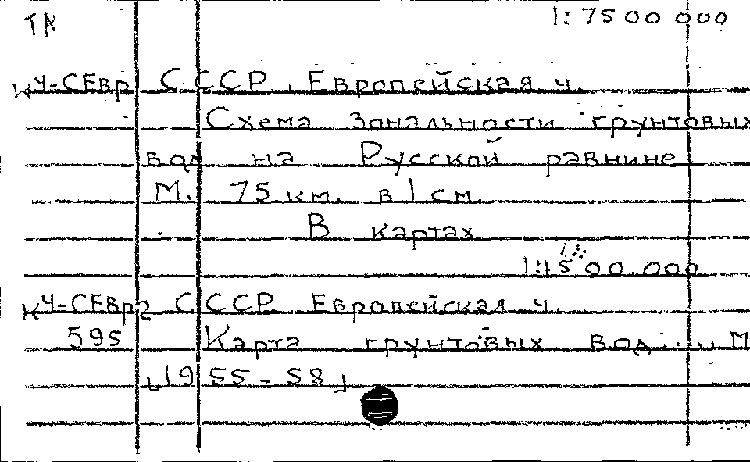 ТК 1:7500 000
КЧ-СЕвр СССР. Европейская ч.
Схема зональности грунтовых
вод на Русской равнине
М. 75 км. в 1 см.
В картах
1:1500.000
КЧ-СЕвр2 СССР Европейская ч.
595 Карта грунтовых вод.... М
[1955-58]